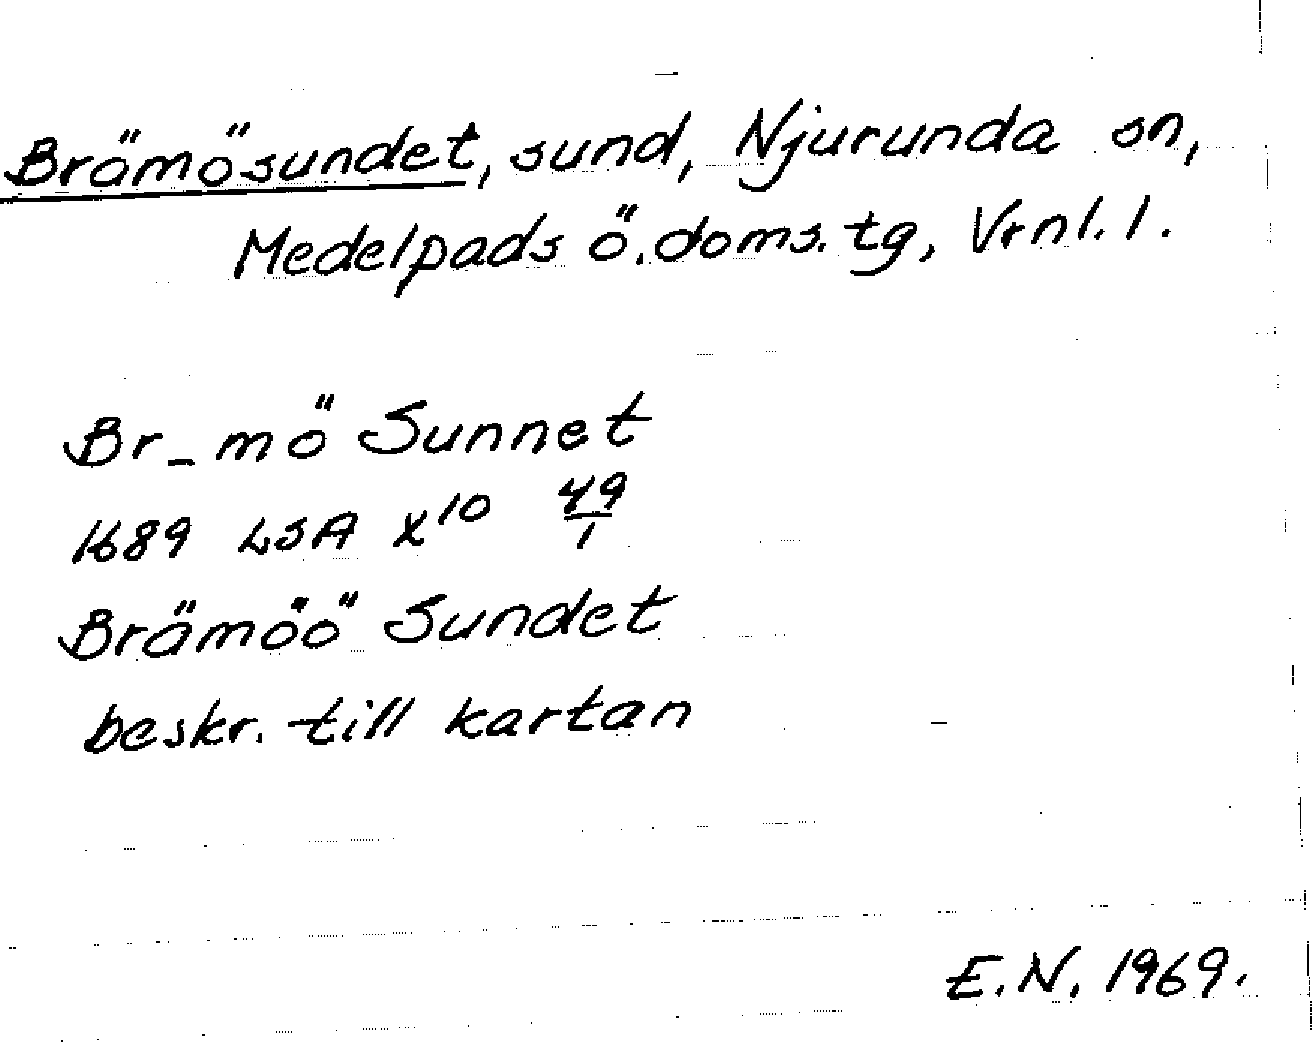 Brämösundet, sund, Njurunda sn,
Medelpads ö. doms. tg, Vrnl. l.
Br_mö Sunnet
1689 LSA X¹⁰ 49/1
Brämöö Sundet
beskr. till kartan
E.N. 1969.